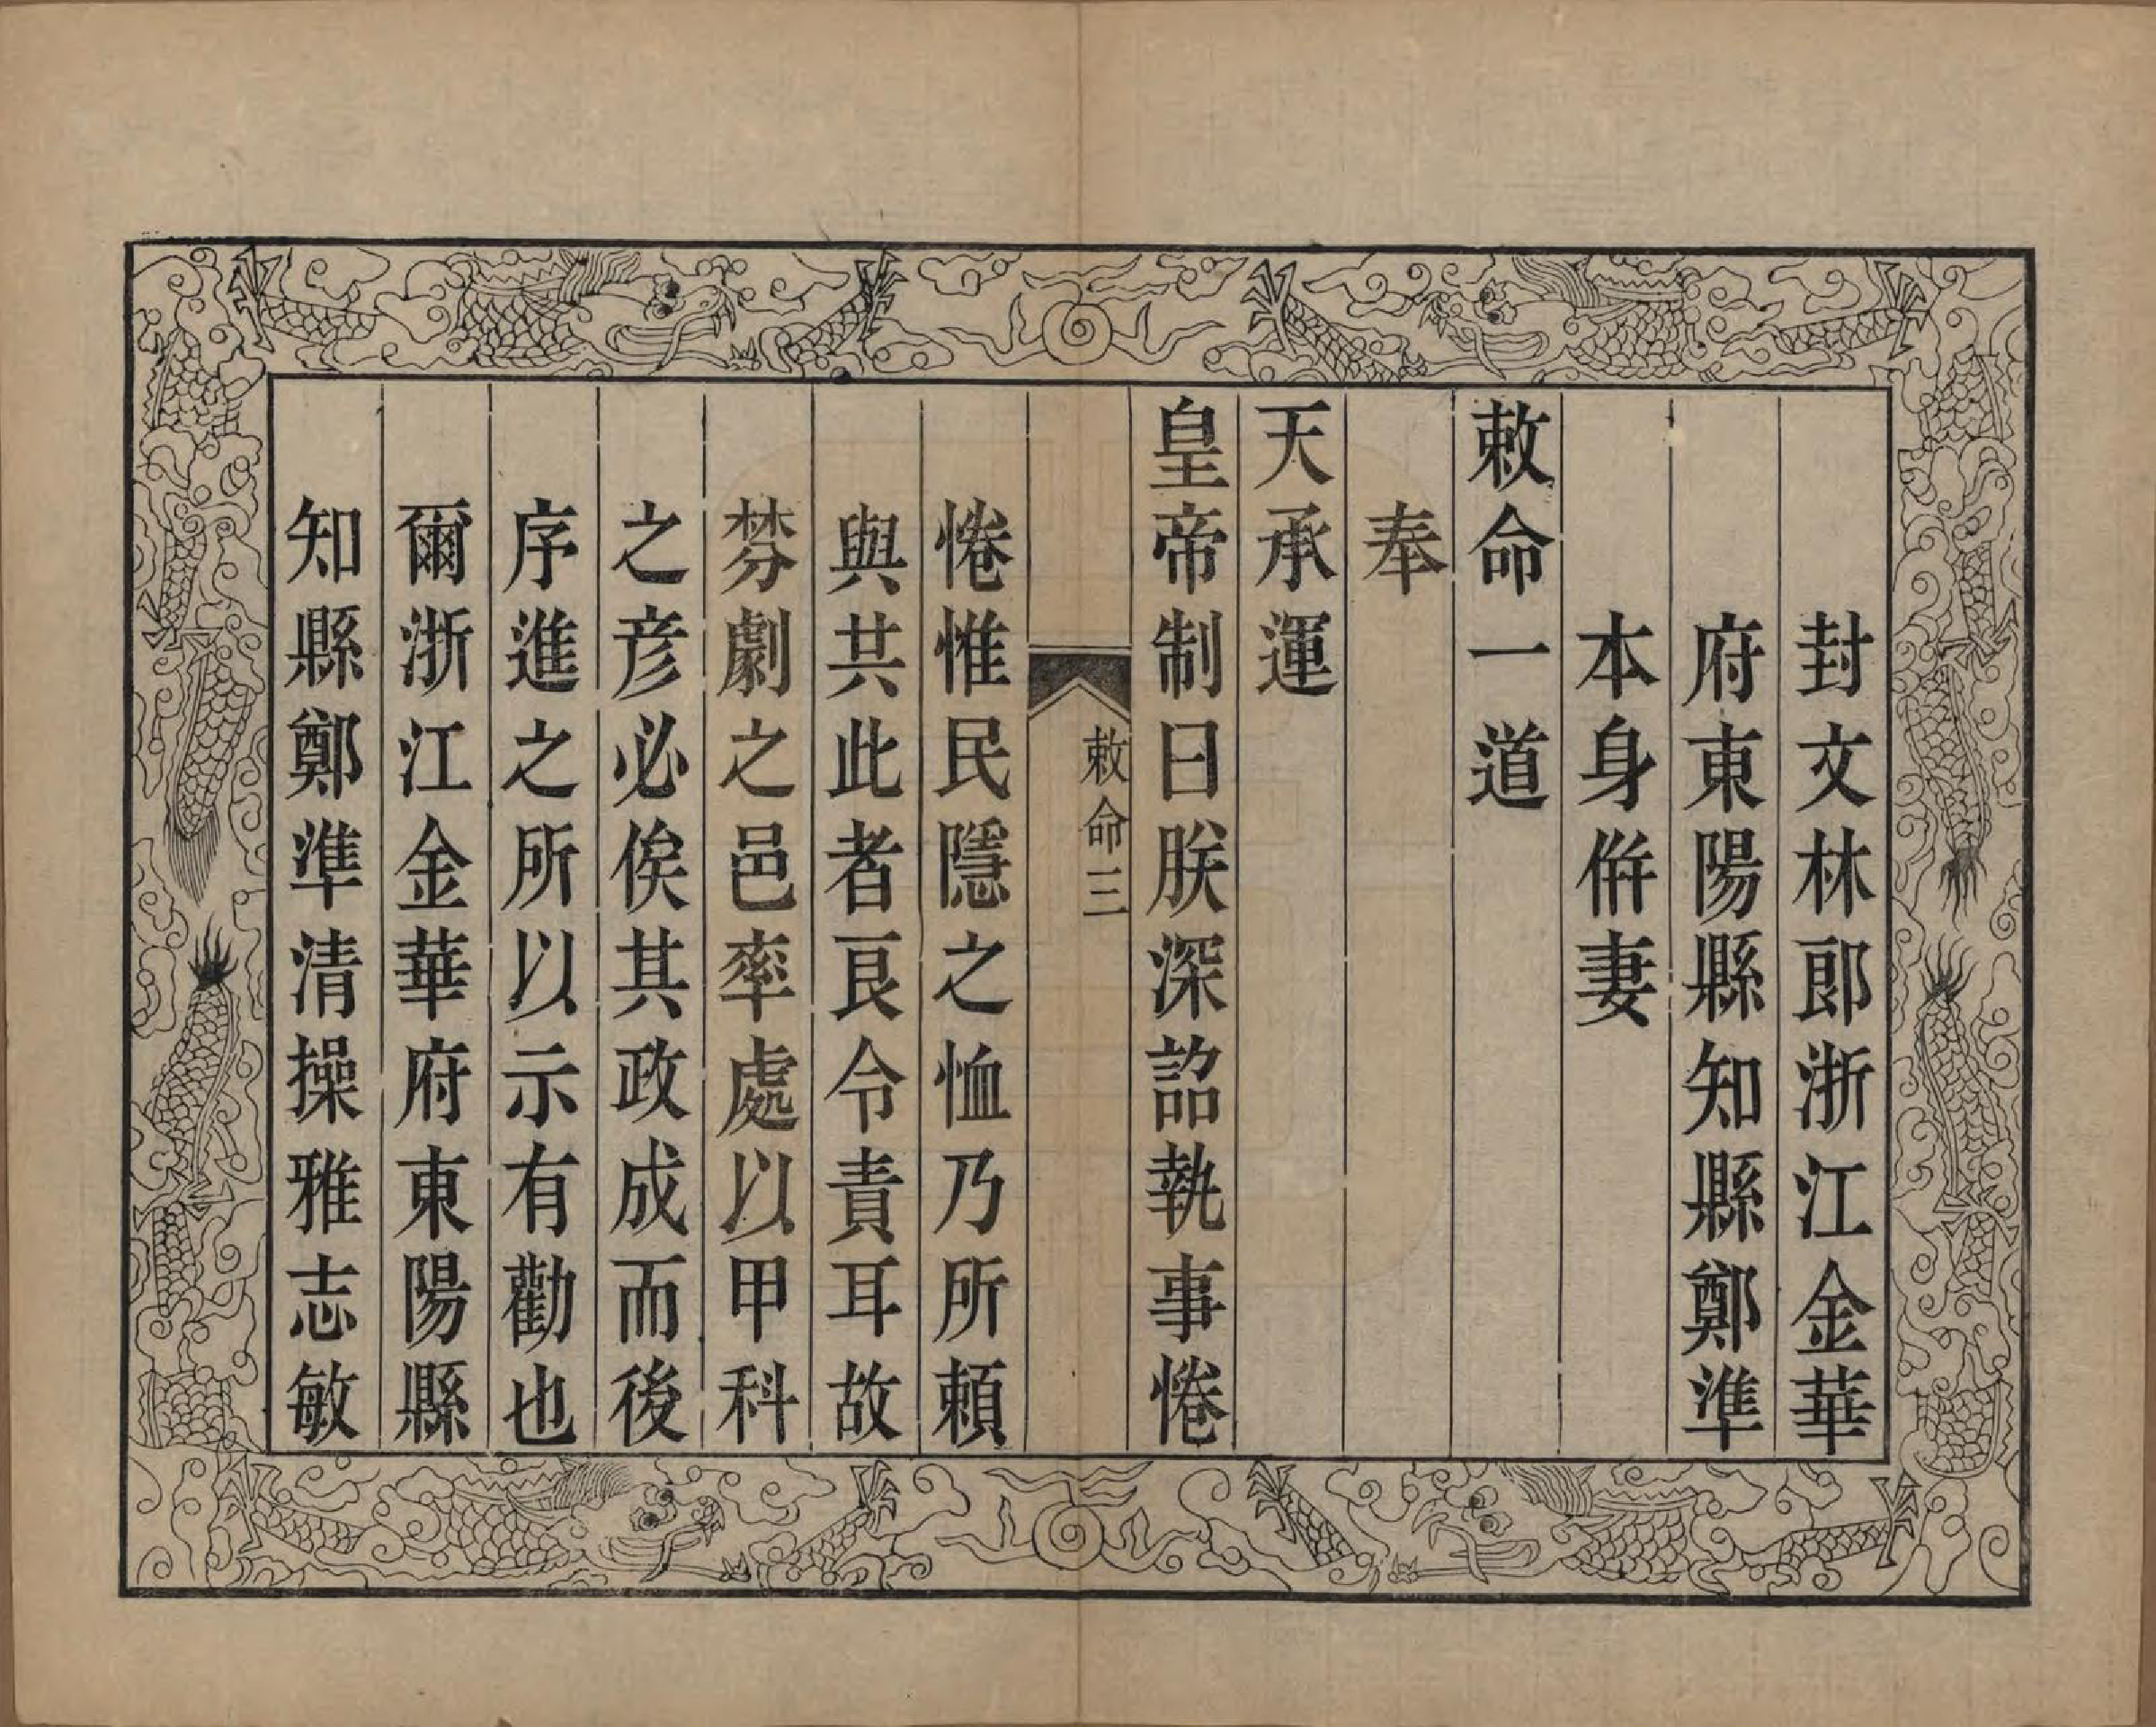 封文林郎浙江金華
府東陽縣知縣鄭準
本身併妻
敕命一道
奉
天承運
皇帝制曰朕深詔執事惓
敕命 三
惓惟民隱之恤乃所頼
與共此者良令責耳故
棼劇之邑率處以甲科
之彥必俟其政成而後
序進之所以示有勸也
爾浙江金華府東陽縣
知縣鄭準清操雅志敏